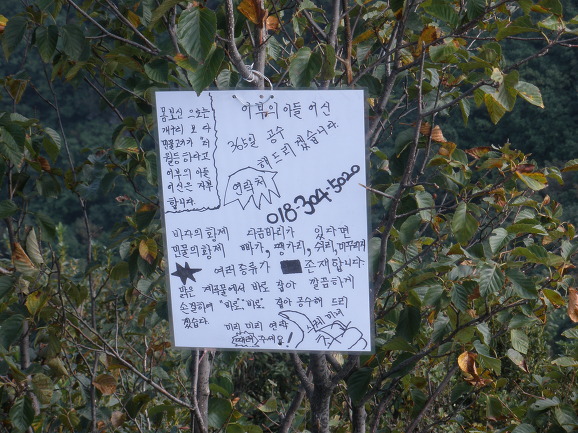 몸보신 으로는
개구리 보 다
민물고기가 더
월등 하다고
어부의 아들
어신은 자부
합니다.
어부의 아들 어신
365일 공수
해드리겠습니다.
연락처
018-304-5020
바다의 황제 다금바리가 있다면
민물의 황제 빠가, 땡가리, 쉬리, 미꾸라지
여러종류가 존재합니다.
맑은 계곡물에서 바로 잡아 깔끔하게
손질하여 "바로" "바로" 잡아 공수해 드리
겠습니다.
미리 미리 연락
주세요!